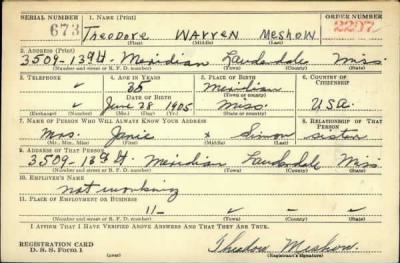 SERIAL NUMBER 1. NAME (Print) ORDER NUMBER
673 Theodore Warren Meshow 2257
(First) (Middle) (Last)
2. ADDRESS (Print)
3509-13th St. Meridian Lauderdale Miss.
(Number and street or R. F. D. number) (Town) (County) (State)
3. TELEPHONE 4. AGE IN YEARS 5. PLACE OF BIRTH 6. COUNTRY OF CITIZENSHIP
35 Meridian
DATE OF BIRTH (Town or county)
June 28 1905 Miss. U.S.A.
(Exchange) (Number) (Mo.) (Day) (Yr.) (State or country)
7. NAME OF PERSON WHO WILL ALWAYS KNOW YOUR ADDRESS 8. RELATIONSHIP OF THAT PERSON
Mrs. Janie x Simon sister
(Mr., Mrs., Miss) (First) (Middle) (Last)
9. ADDRESS OF THAT PERSON
3509-13th St. Meridian Lauderdale Miss.
(Number and street or R. F. D. number) (Town) (County) (State)
10. EMPLOYER'S NAME
not working
11. PLACE OF EMPLOYMENT OR BUSINESS
(Number and street or R. F. D. number) (Town) (County) (State)
I AFFIRM THAT I HAVE VERIFIED ABOVE ANSWERS AND THAT THEY ARE TRUE.
REGISTRATION CARD
D. S. S. Form 1 (over) Theodore Meshow.
(Registrant's signature)